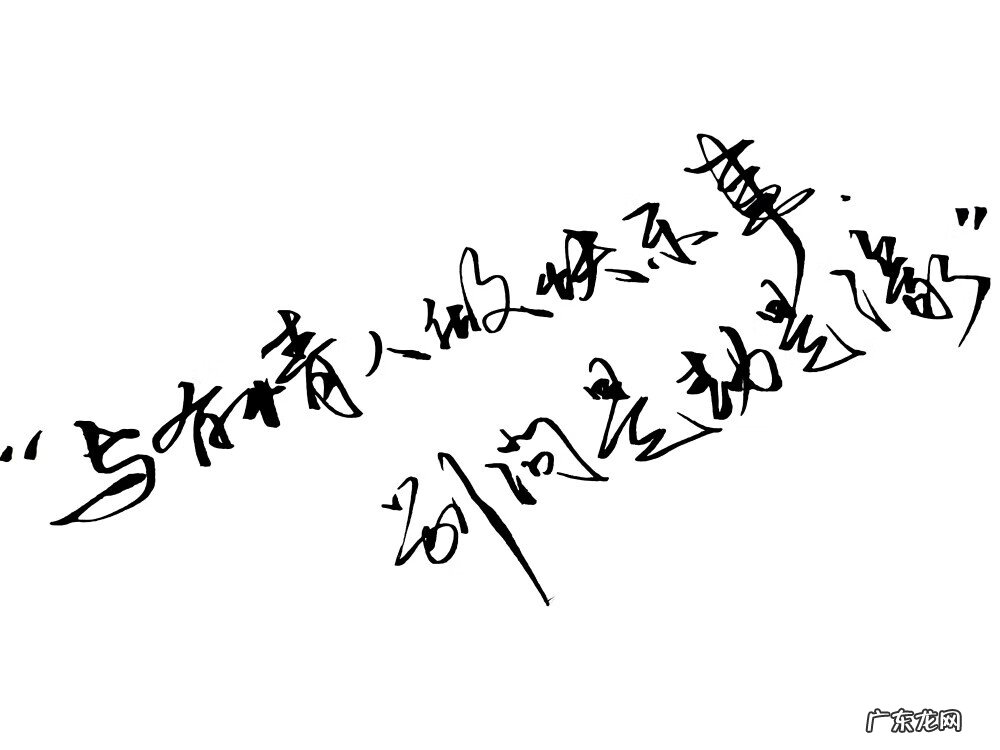 “与有情人做快乐事.
别问是劫是缘”
广东龙网